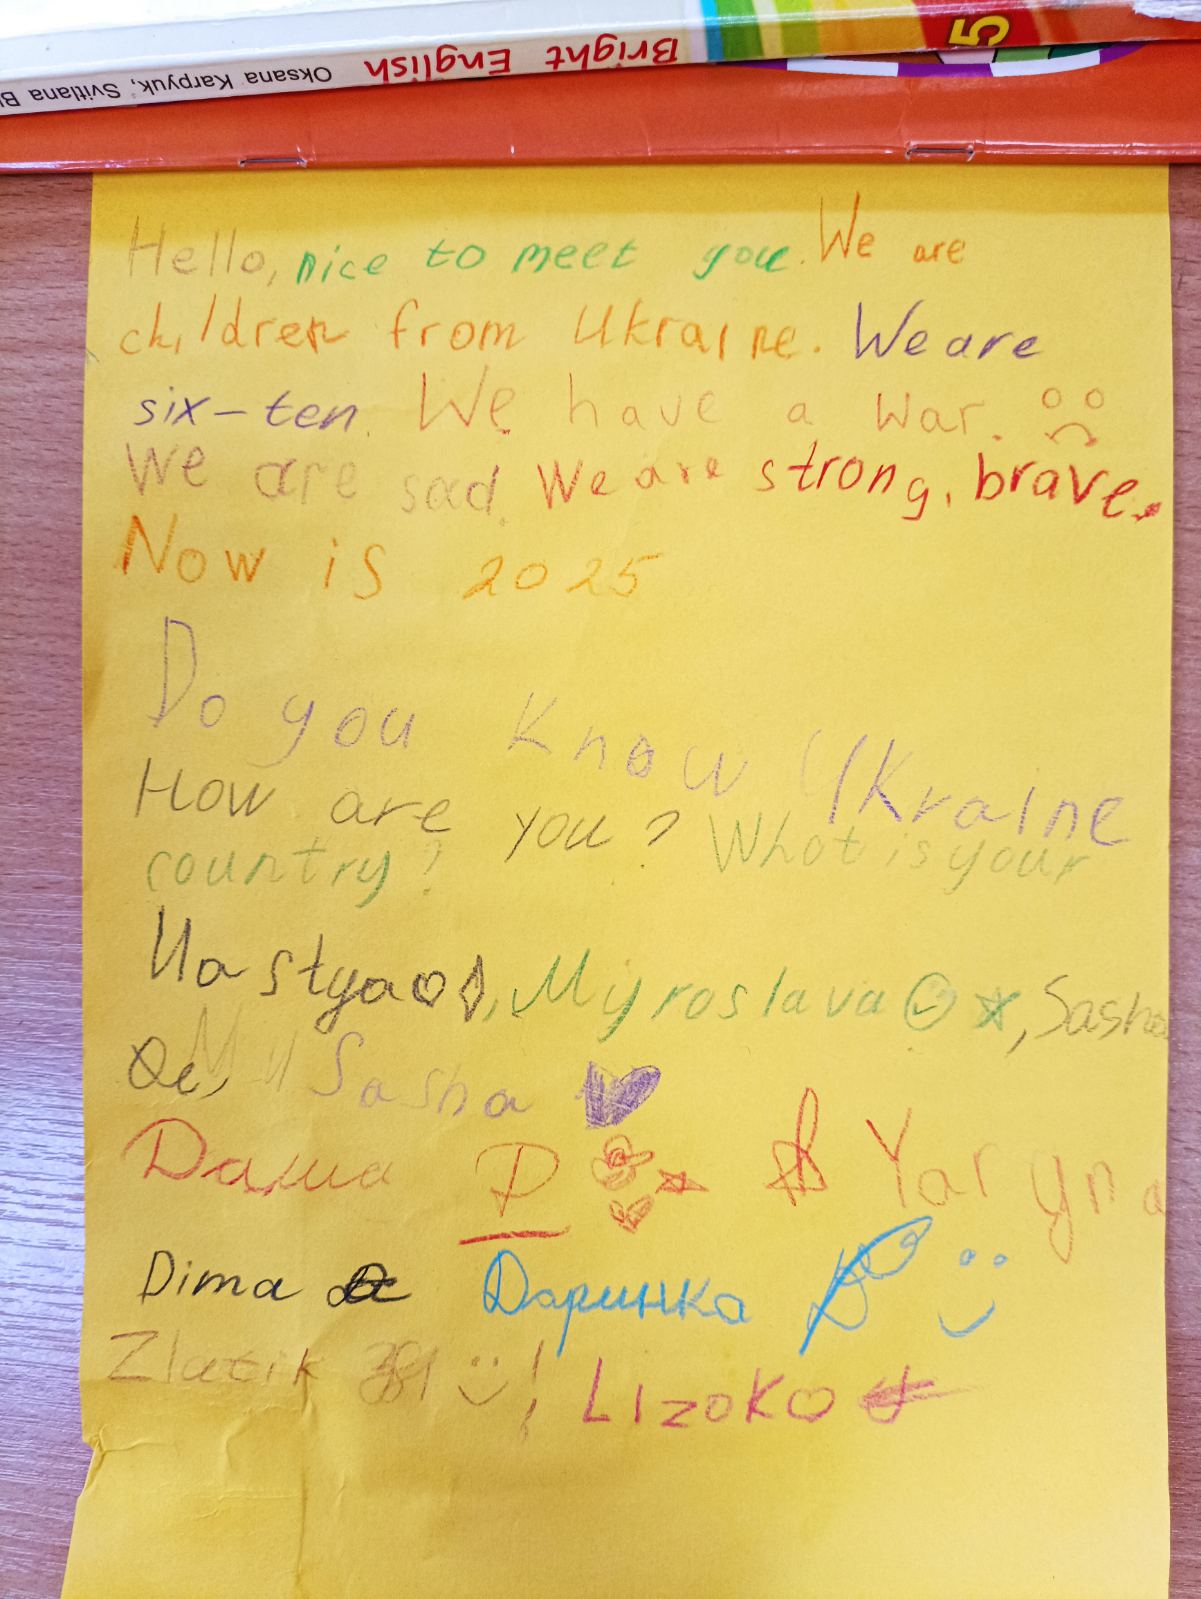 5
Bright English
Oksana Karpyuk, Svitlana
Hello, nice to meet you. We are
children from Ukraine. We are
six-ten. We have a war.
We are sad. We are strong, brave.
Now is 2025
Do you know Ukraine
How are you? What is your
country?
Nastya, Myroslava, Sasha
Sasha
Даша Yaryna
Dima Даринка
Zlatik ! Lizoko